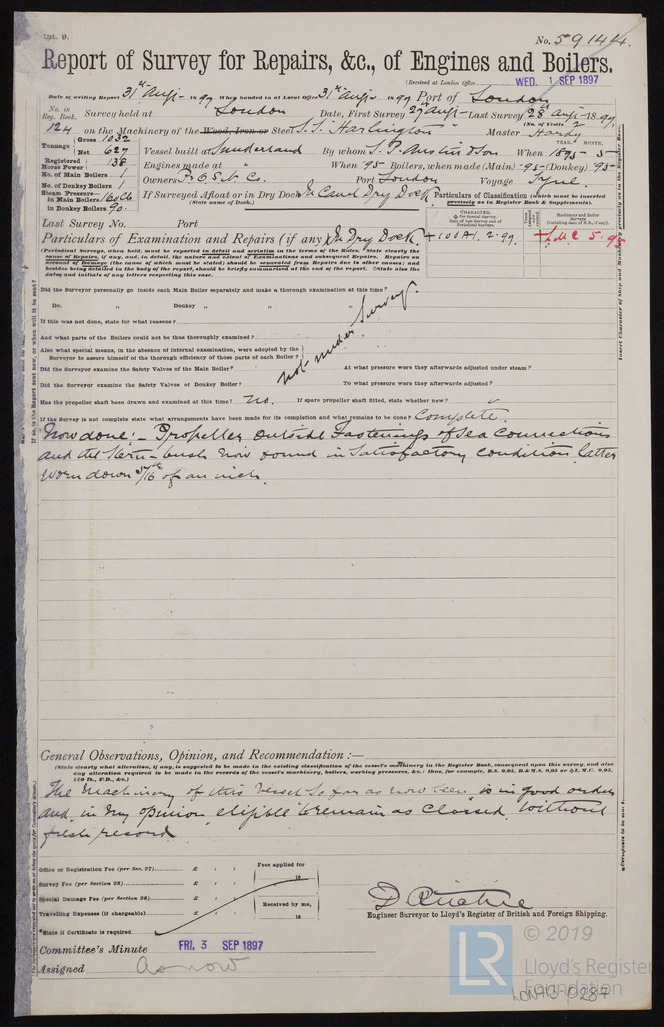 Rpt. 9.
No. 59144.
Report of Survey for Repairs, &c., of Engines and Boilers.
(Received at London Office WED. 1 SEP 1897
Date of writing Report 31st Augt 1897 When handed in at Local Office 31st Augt 1897 Port of London
No. in Reg. Book. 124
Survey held at London Date, First Survey 27th Augt Last Survey 28th Augt 1897
(No. of Visits 2
on the Machinery of the Wood, Iron or Steel S.S. Harlington Master Hardy
Tonnage Gross 1032
Net 627
Vessel built at Sunderland By whom S. P. Austin & Son When 1895 - 5
YEAR. MONTH.
Registered Horse Power 138
Engines made at " When '95 Boilers, when made (Main) '95 (Donkey) '95
No. of Main Boilers 1
Owners Port London Voyage Tyne.
No. of Donkey Boilers 1
Steam Pressure in Main Boilers 160 lb
in Donkey Boilers 90
If Surveyed Afloat or in Dry Dock Dry Dock
(State name of Dock.)
Particulars of Classification (which must be inserted precisely as in Register Book & Supplements).
Last Survey No. Port
Particulars of Examination and Repairs (if any) In Dry Dock.
+100A1. 2.97.
+LMC 5.95
(Periodical Surveys, when held, must be reported in detail and seriatim in the terms of the Rules. State clearly the cause of Repairs, if any, and, in detail, the nature and extent of Examinations and subsequent Repairs. Repairs on account of Damage (the cause of which must be stated) should be separated from Repairs due to other causes; and besides being detailed in the body of the report, should be briefly summarised at the end of the report. State also the dates and initials of any letters respecting this case.
Did the Surveyor personally go inside each Main Boiler separately and make a thorough examination at this time?
Do. " Donkey " "
not under Survey.
If this was not done, state for what reasons?
And what parts of the Boilers could not be thus thoroughly examined?
Also what special means, in the absence of internal examination, were adopted by the Surveyor to assure himself of the thorough efficiency of those parts of each Boiler?
Did the Surveyor examine the Safety Valves of the Main Boiler? At what pressure were they afterwards adjusted under steam?
Did the Surveyor examine the Safety Valves of Donkey Boiler? To what pressure were they afterwards adjusted?
Has the propeller shaft been drawn and examined at this time? No. If spare propeller shaft fitted, state whether new?
If the Survey is not complete state what arrangements have been made for its completion and what remains to be done? Complete.
Now done:- Propeller outside Fastenings of Sea Connections
and the Stern-bush now found in Satisfactory condition latter
worn down 3/16 of an inch.
General Observations, Opinion, and Recommendation:—
(State clearly what alteration, if any, is suggested to be made in the existing classification of the vessel's machinery in the Register Book, consequent upon this survey, and also any alteration required to be made in the records of the vessel's machinery, boilers, working pressures, &c.: thus, for example, B.S. 9,95, B.&M.S. 9,95 or +L.M.C. 9,95, 150 lb., F.D., &c.)
The machinery of this vessel so far as now seen is in good order
and in my opinion eligible to remain as Classed, without
fresh record
Office or Registration Fee (per Sec. 27) £ : :
Survey Fee (per Section 28) £ : :
Special Damage Fee (per Section 28) £ : :
Travelling Expenses (if chargeable) £ : :
Fees applied for
18
Received by me,
18
*State if Certificate is required
Engineer Surveyor to Lloyd's Register of British and Foreign Shipping.
Committee's Minute FRI. 3 SEP 1897
Assigned as now
LR
© 2019
Lloyd's Register
Foundation